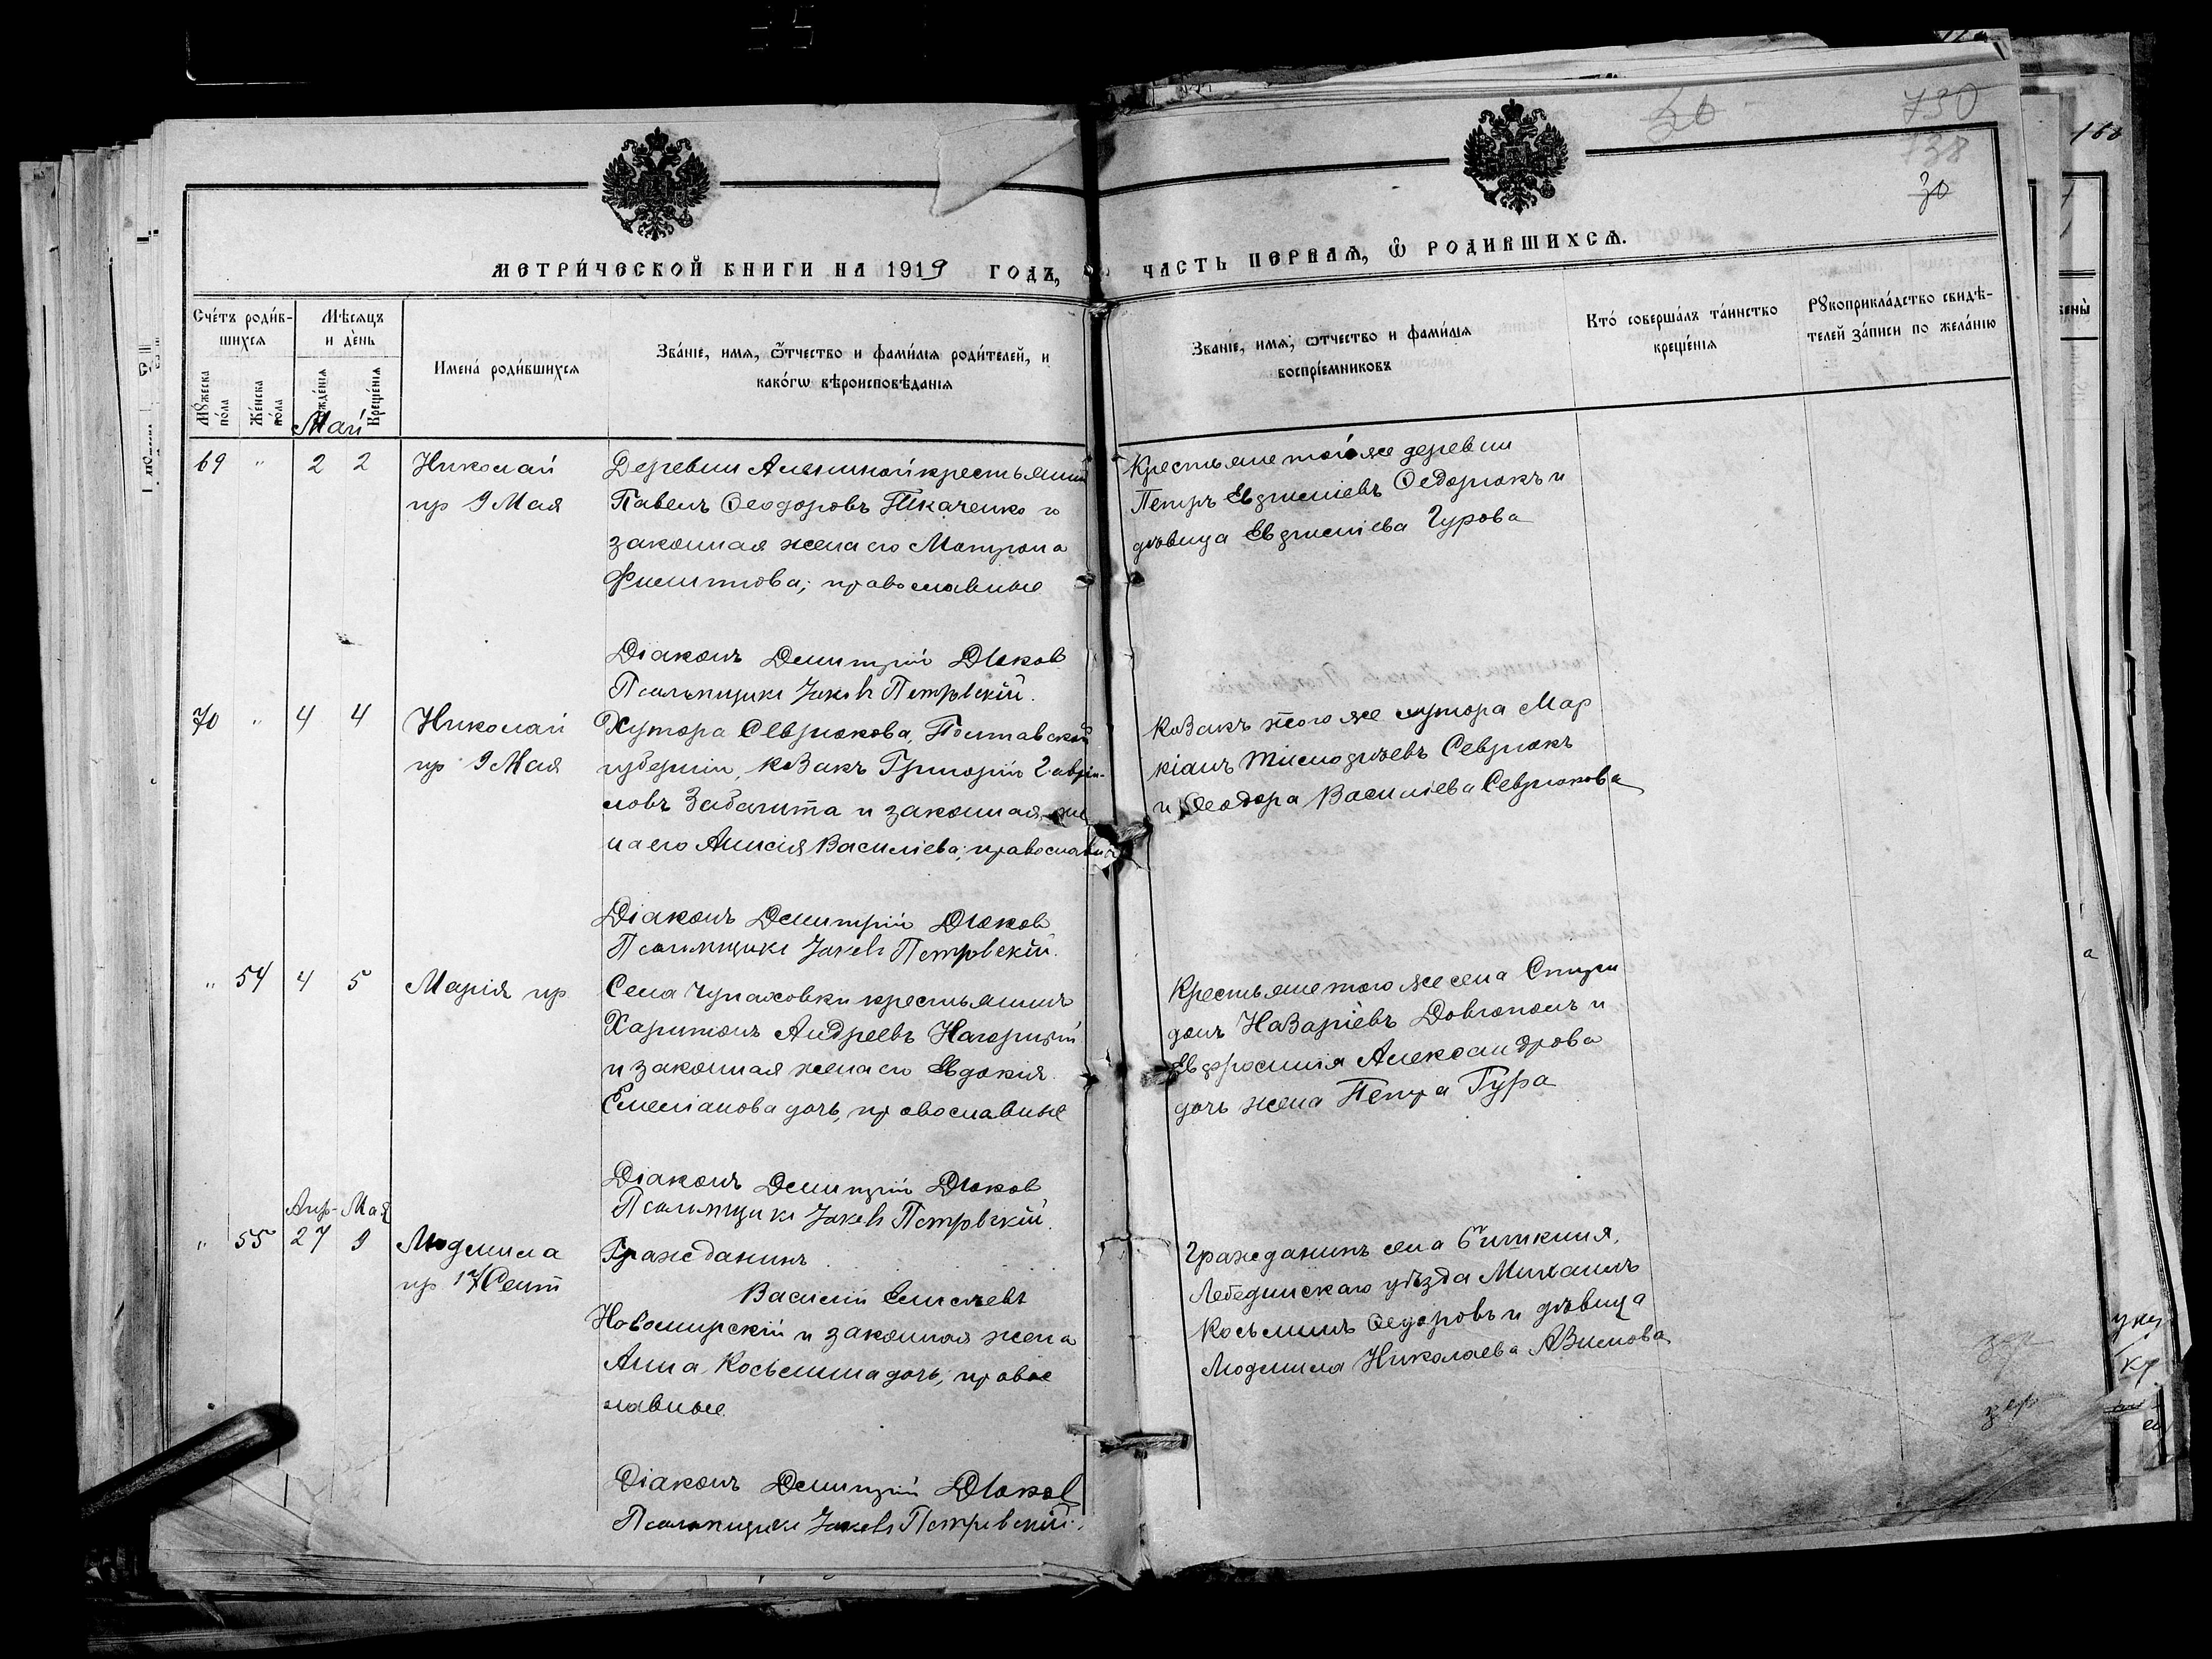 730
738
30
МЕТРИ́ЧЕСКОЙ КНИГИ НА 1919 ГОДЪ,
ЧАСТЬ ПЕРВАЯ, Ѿ РОДИВШИХСѦ.
Сче́тъ роди́в-
шихсѧ
Мѣ́сѧцъ
и де́нь
Имена́ роди́вшихсѧ
Зва́нїе, имѧ, ѻ҆́тчество и фами́лїѧ роди́телей, и
како́гѡ вѣроисповѣ́данїѧ
Мꙋ́жеска по́ла
Же́нска по́ла
Рожде́нїѧ
Креще́нїѧ
Зва́нїе, имѧ, ѻтчество и фами́лїѧ
воспрїе́мниковъ
Кто́ соверша́лъ та́инство
креще́нїѧ
Рꙋкоприкла́дство свидѣ́-
телей за́писи по жела́нїю
Май
69 " 2 2
Николай
пр 9 Мая
Деревни крестьянин
Павелъ Ѳеодоровъ Ткаченко и
законная жена его Матрона
Филиппова; православные
Діаконъ Димитрій Дюков
Псаломщикъ Іаковъ Петровскій.
Крестьяне той же деревни
Петръ Евгеніевъ Ѳедорюкъ и
дѣвица Евгеніева Гурова
70 " 4 4
Николай
пр 9 Мая
Хутора Севрюкова, Полтавской
губерніи, козакъ Григорій Гавріи-
ловъ Забашта и законная же
на его Анисія Василіева; православн
Діаконъ Димитрій Дюков
Псаломщикъ Іаковъ Петровскій.
Козакъ того же хутора Мар
кіанъ Тимоѳеевъ Севрюкъ
и Ѳеодора Василіева Севрюкова
" 54 4 5
Марія пр
Села Чупаховки крестьянинъ
Харитонъ Андреевъ Нагорный
и законная жена его Евдокія
Емеліанова дочь, православные
Діаконъ Димитрій Дюков
Псаломщикъ Іаковъ Петровскій.
Крестьяне того же села Спири
донъ Назаріевъ Довгополъ и
Евфросинія Александрова
дочь жена Петра Гура
Апр- Мая
" 55 27 9
Людмила
пр 16/Сент
Гражданинъ
Василій Елисеевъ
Новомирскій и законная жена
Анна Косьмина дочь, право
славные
Діаконъ Димитрій Дюков
Псаломщикъ Іаковъ Петровскій.
Гражданинъ села Бишкиня,
Лебединскаго уѣзда Михаилъ
Косьминъ Ѳедоровъ и дѣвица
Людмила Николаева Азимова